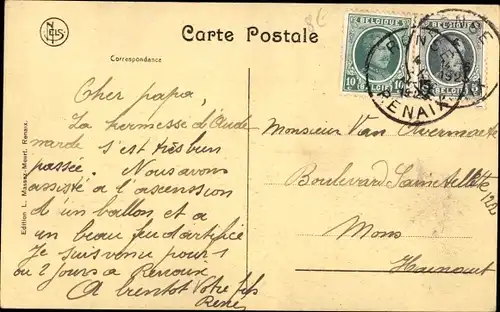 NELS
Carte Postale
8E
BELGIQUE
10 10
BELGIË
BELGIQUE
5
RENAIX
Correspondance
Cher papa,
La kermesse d'Aude
narde s'est très bien
passée. Nous avons
assisté à l'ascenssion
d'un ballon et a
un beau feu d'artifice
Je suis venu pour 1
ou 2 jours a Renaix
A bientot Votre fils
René
Monsieur Van Overmaete
Boulevard Sainctelette 120
Mons
Hainaut
Edition L. Massez-Meurt, Renaix.